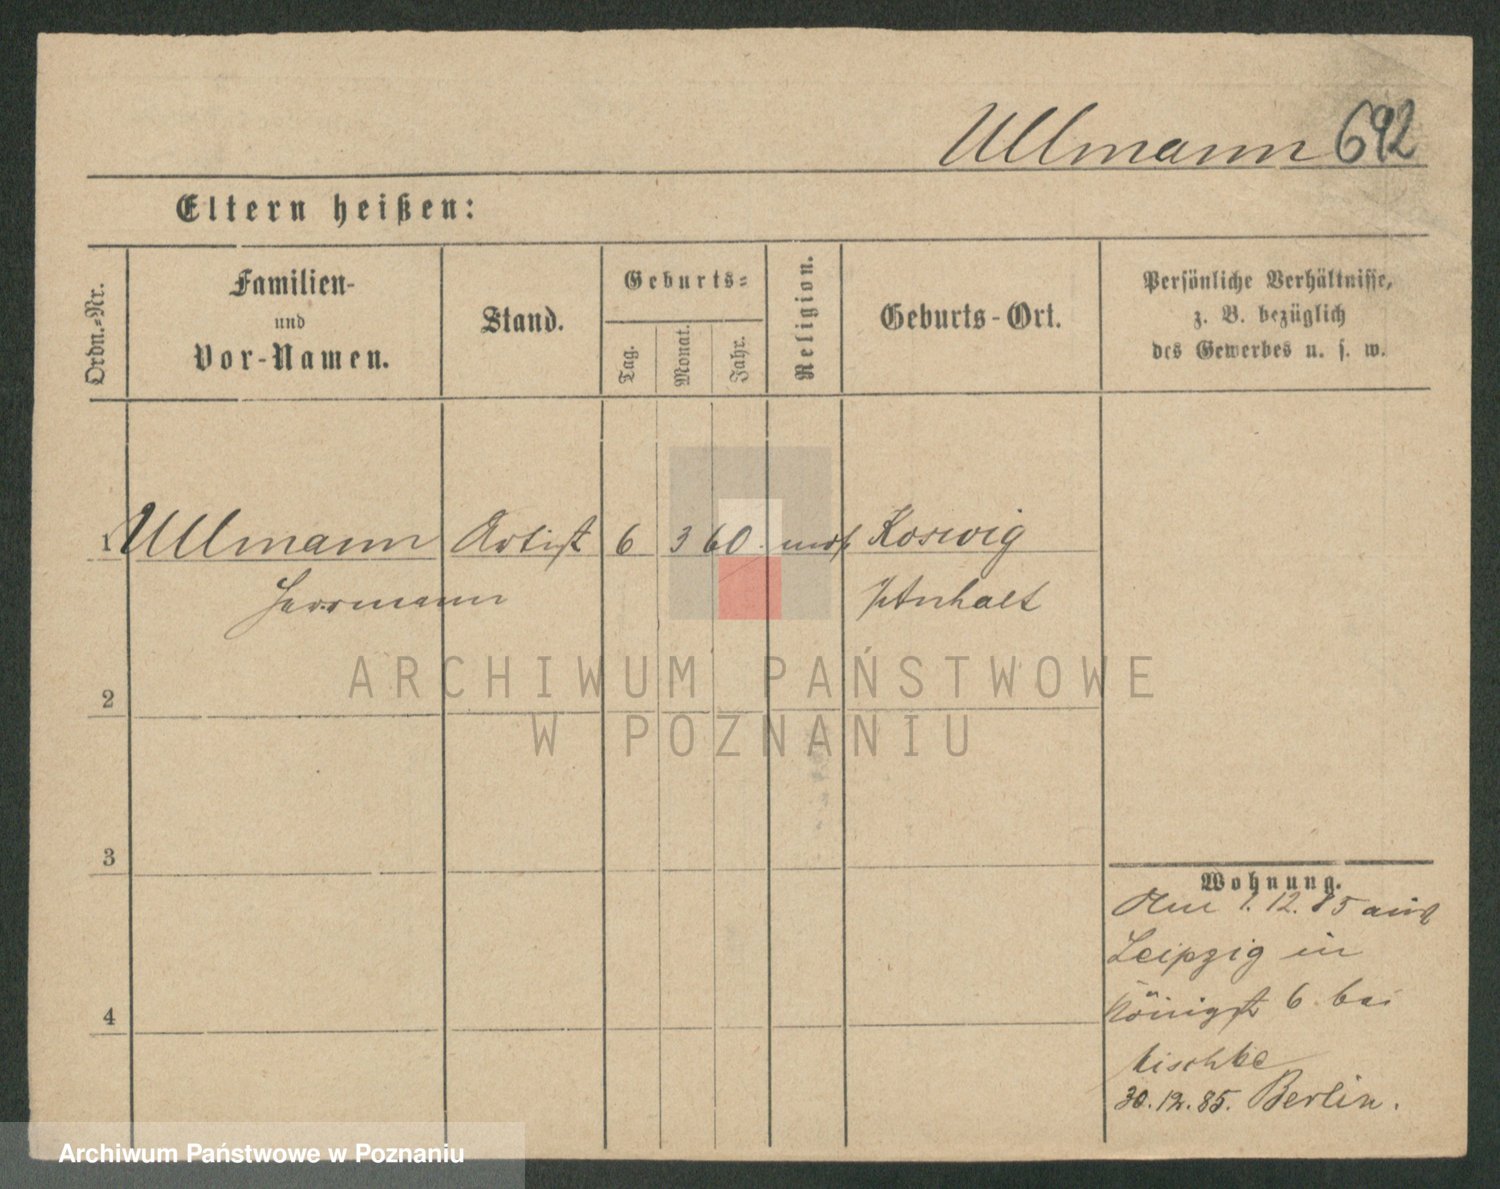 Ullmann 692
Eltern heißen:
Ordn.=Nr.
Familien-
und
Vor-Namen.
Stand.
Geburts=
Tag.
Monat.
Jahr.
Religion.
Geburts-Ort.
Persönliche Verhältnisse,
z. B. bezüglich
des Gewerbes u. s. w.
1 Ullmann Artist 6 3 60. Koswig
Herrmann Anhalt
ARCHIWUM PAŃSTWOWE
W POZNANIU
2
3
4
Wohnung.
Am 1. 12. 85 aus
Leipzig in
Königst 6 bei
30. 12. 85. Berlin.
Archiwum Państwowe w Poznaniu